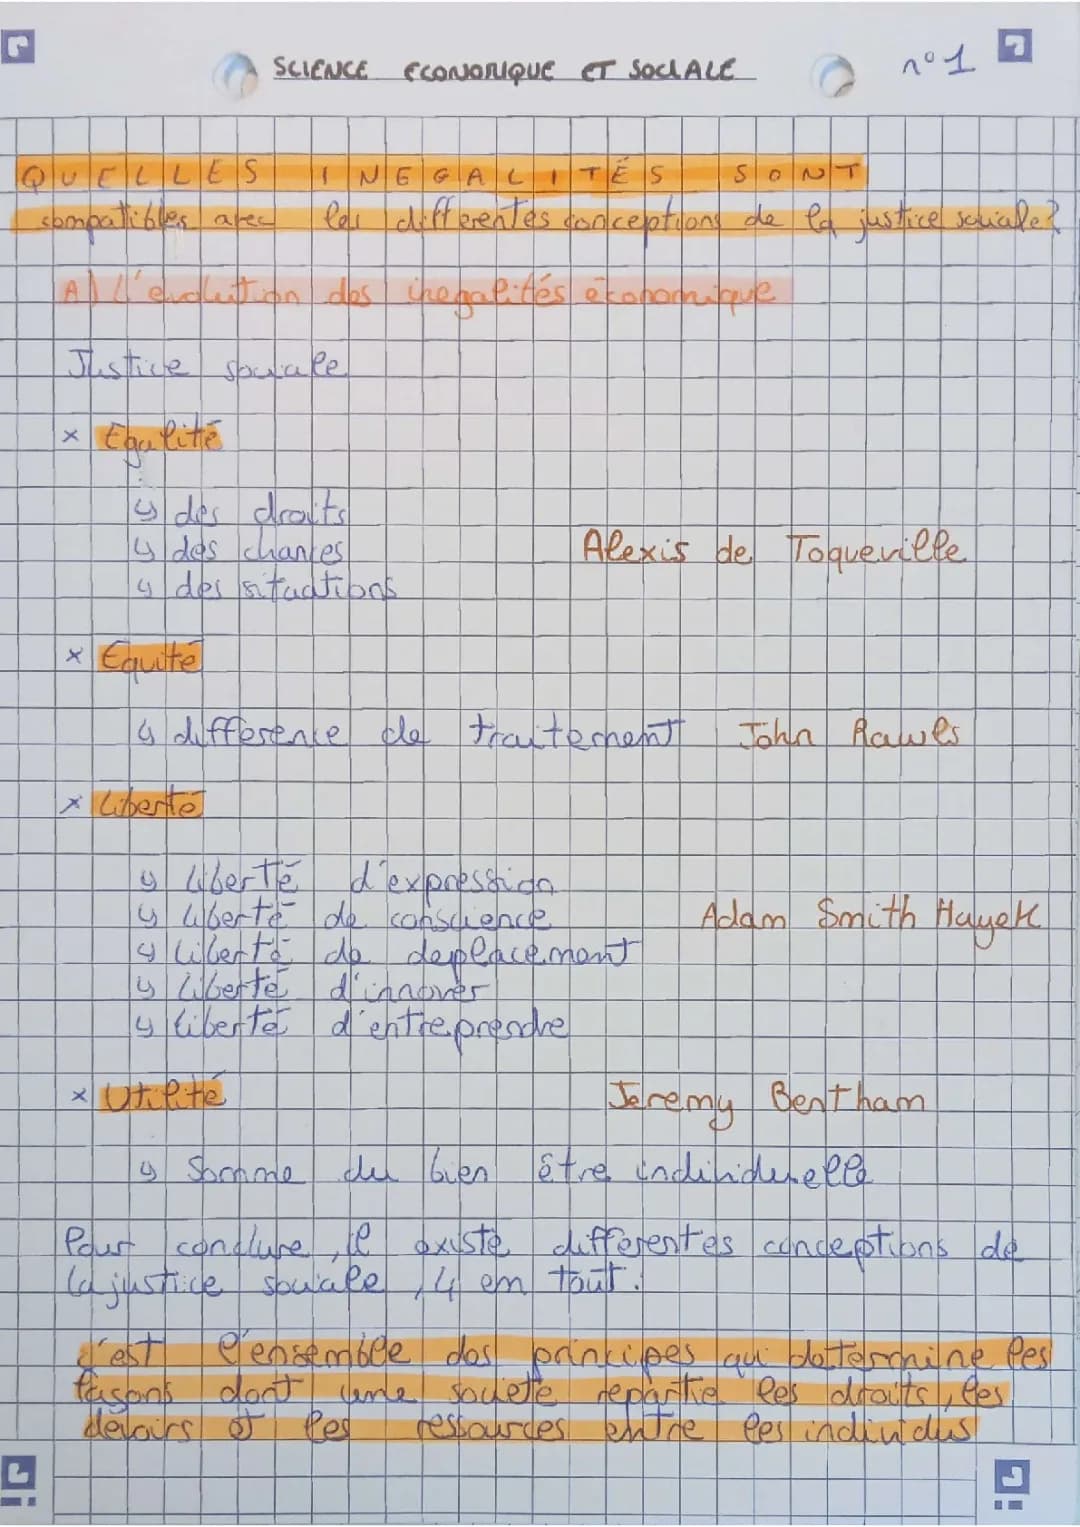 SCIENCE ECONOMIQUE ET SOCIALE
n°1
QUELLES INEGALITÉS SONT
compatibles avec les differentes conceptions de la justice sociale?
A) L'evolution des inegalités économique
Justice sociale
x Egalité
↳ des droits
↳ des chances
Alexis de Toqueville
↳ des situations
x Equité
↳ difference de traitement John Rawls
x liberté
↳ liberté d'expression
↳ liberté de conscience
Adam Smith Hayek
↳ liberté de deplacement
↳ liberté d'innover
↳ liberté d'entreprendre
x Utilité
Jeremy Bentham
↳ Somme du bien être individuelle
Pour conclure, il existe differentes conceptions de
la justice sociale, 4 en tout.
c'est l'ensemble des principes qui determine les
façons dont une societé repartie les droits, les
devoirs et les ressources entre les individus